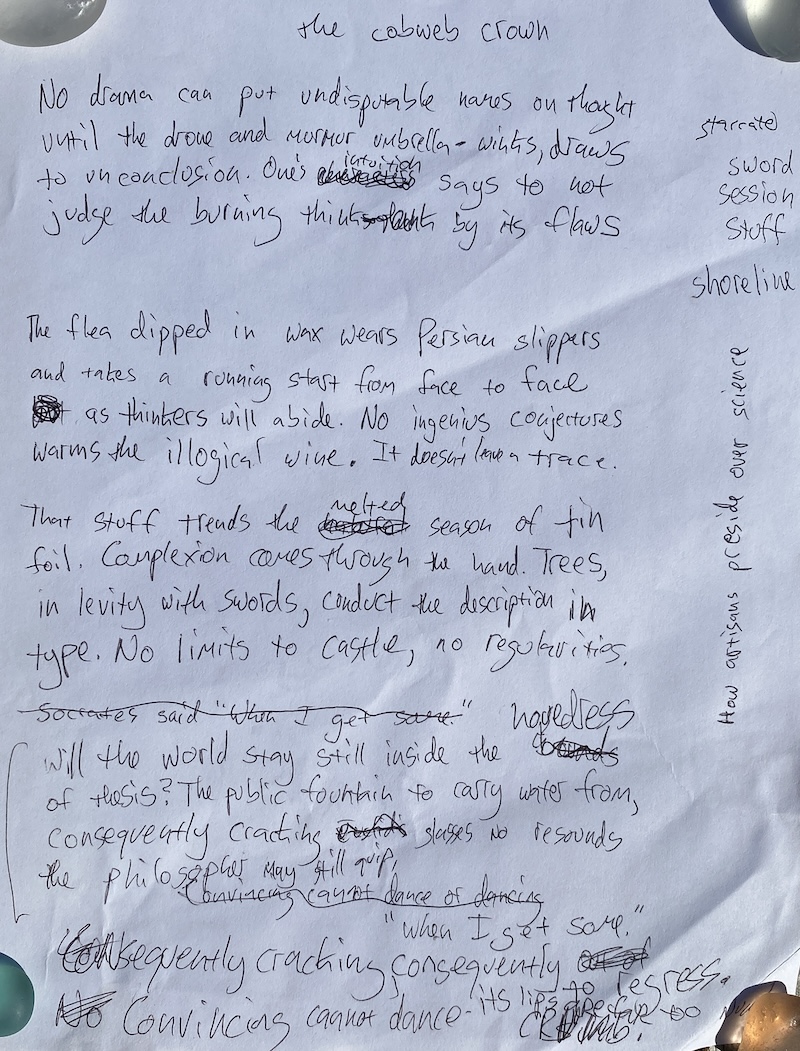 the cobweb crown
No drama can put undisputable names on thought
until the drone and murmur umbrella-winks, draws
to unconclusion. One's intuition says to not
judge the burning think by its flaws
starcated
sword
session
stuff
shoreline
The flea dipped in wax wears Persian slippers
and takes a running start from face to face
as thinkers will abide. No ingenius conjectures
warms the illogical wine. It doesn't leave a trace.
That stuff trends the melted season of tin
foil. Complexion comes through the hand. Trees,
in levity with swords, conduct the description in
type. No limits to castle, no regularities.
How artisans preside over science
Socrates said "When I get some."
Will the world stay still inside the
of thesis? The public fountain to carry water from,
consequently cracking glasses no resounds
the philosopher may still quip,
Convincing cannot dance of dancing
"When I get some."
Consequently cracking consequently
to regress.
No Convincing cannot dance - its lips are too